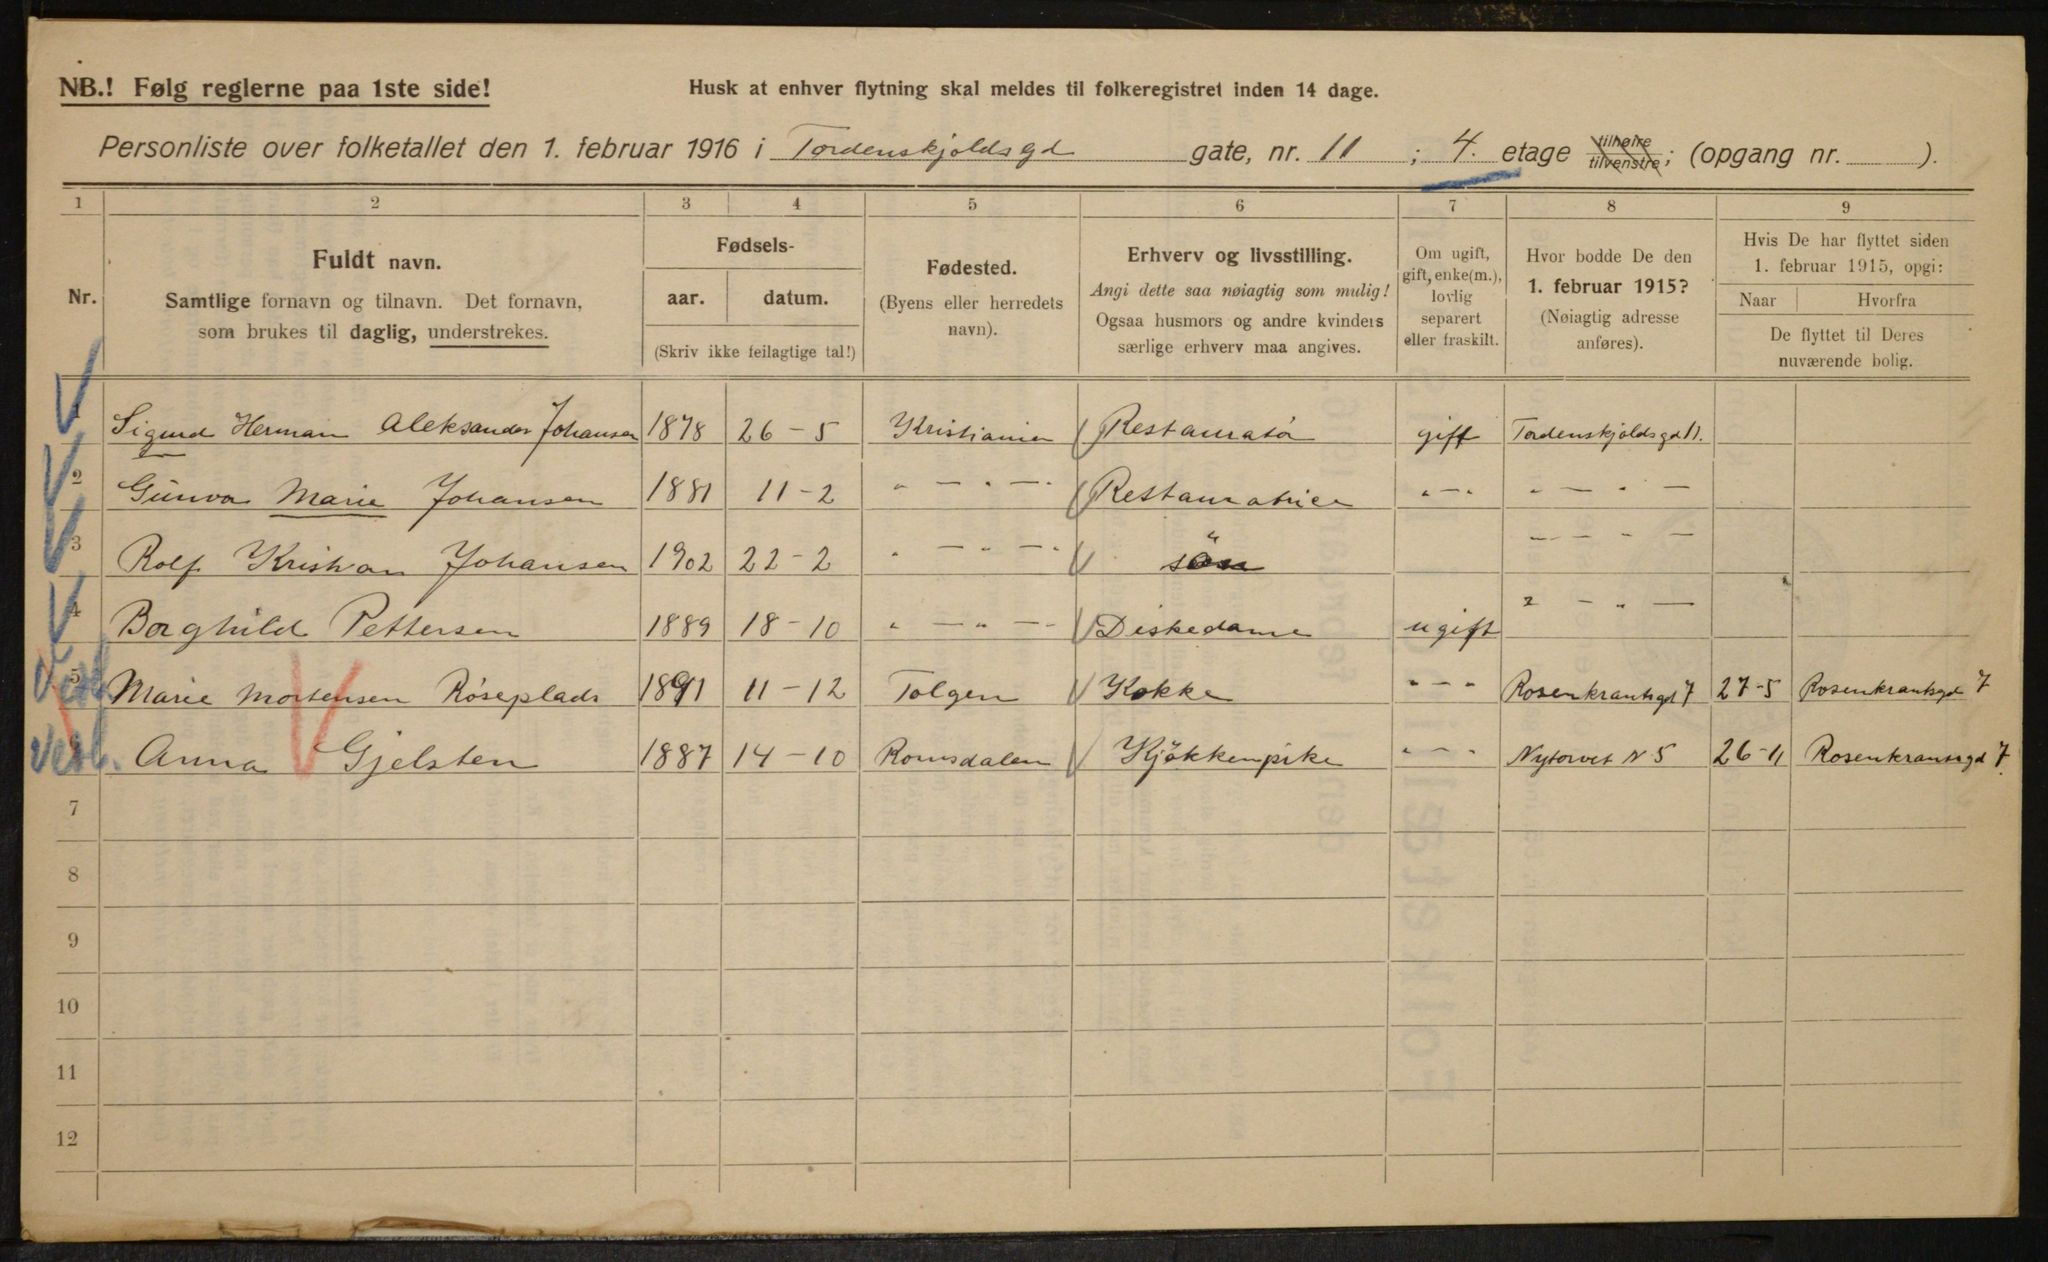 NB.! Følg reglerne paa 1ste side!
Husk at enhver flytning skal meldes til folkeregistret inden 14 dage.
Personliste over folketallet den 1. februar 1916 i Tordenskjoldsgd gate, nr. 11 ; 4. etage tilhøire tilvenstre; (opgang nr. ).
1 2 3 4 5 6 7 8 9
Nr.
Fuldt navn.
Samtlige fornavn og tilnavn. Det fornavn,
som brukes til daglig, understrekes.
Fødsels-
aar. datum.
(Skriv ikke feilagtige tal!)
Fødested.
(Byens eller herredets
navn).
Erhverv og livsstilling.
Angi dette saa nøiagtig som mulig!
Ogsaa husmors og andre kvinders
særlige erhverv maa angives.
Om ugift,
gift, enke(m.),
lovlig
separert
eller fraskilt.
Hvor bodde De den
1. februar 1915?
(Nøiagtig adresse
anføres).
Hvis De har flyttet siden
1. februar 1915, opgi:
Naar Hvorfra
De flyttet til Deres
nuværende bolig.
1 Sigurd Herman Aleksander Johansen 1878 26-5 Kristiania Restauratør gift Tordenskjoldsgd 11.
2 Gunva Marie Johansen 1881 11-2 " — " — Restauratrice " — " " — " —
3 Rolf Kristian Johansen 1902 22-2 " — " — søn " — " —
4 Borghild Pettersen 1889 18-10 " — " — Diskedame ugift " — " —
5 Marie Mortensen Røseplads 1891 11-12 Tolgen Kokke " — " Rosenkrantsgd 7 27-5 Rosenkrantsgd 7
6 Anna Gjelsten 1887 14-10 Romsdalen Kjøkkenpike " — " Nytorvet N 5 26-11 Rosenkrantsgd 7.
7
8
9
10
11
12